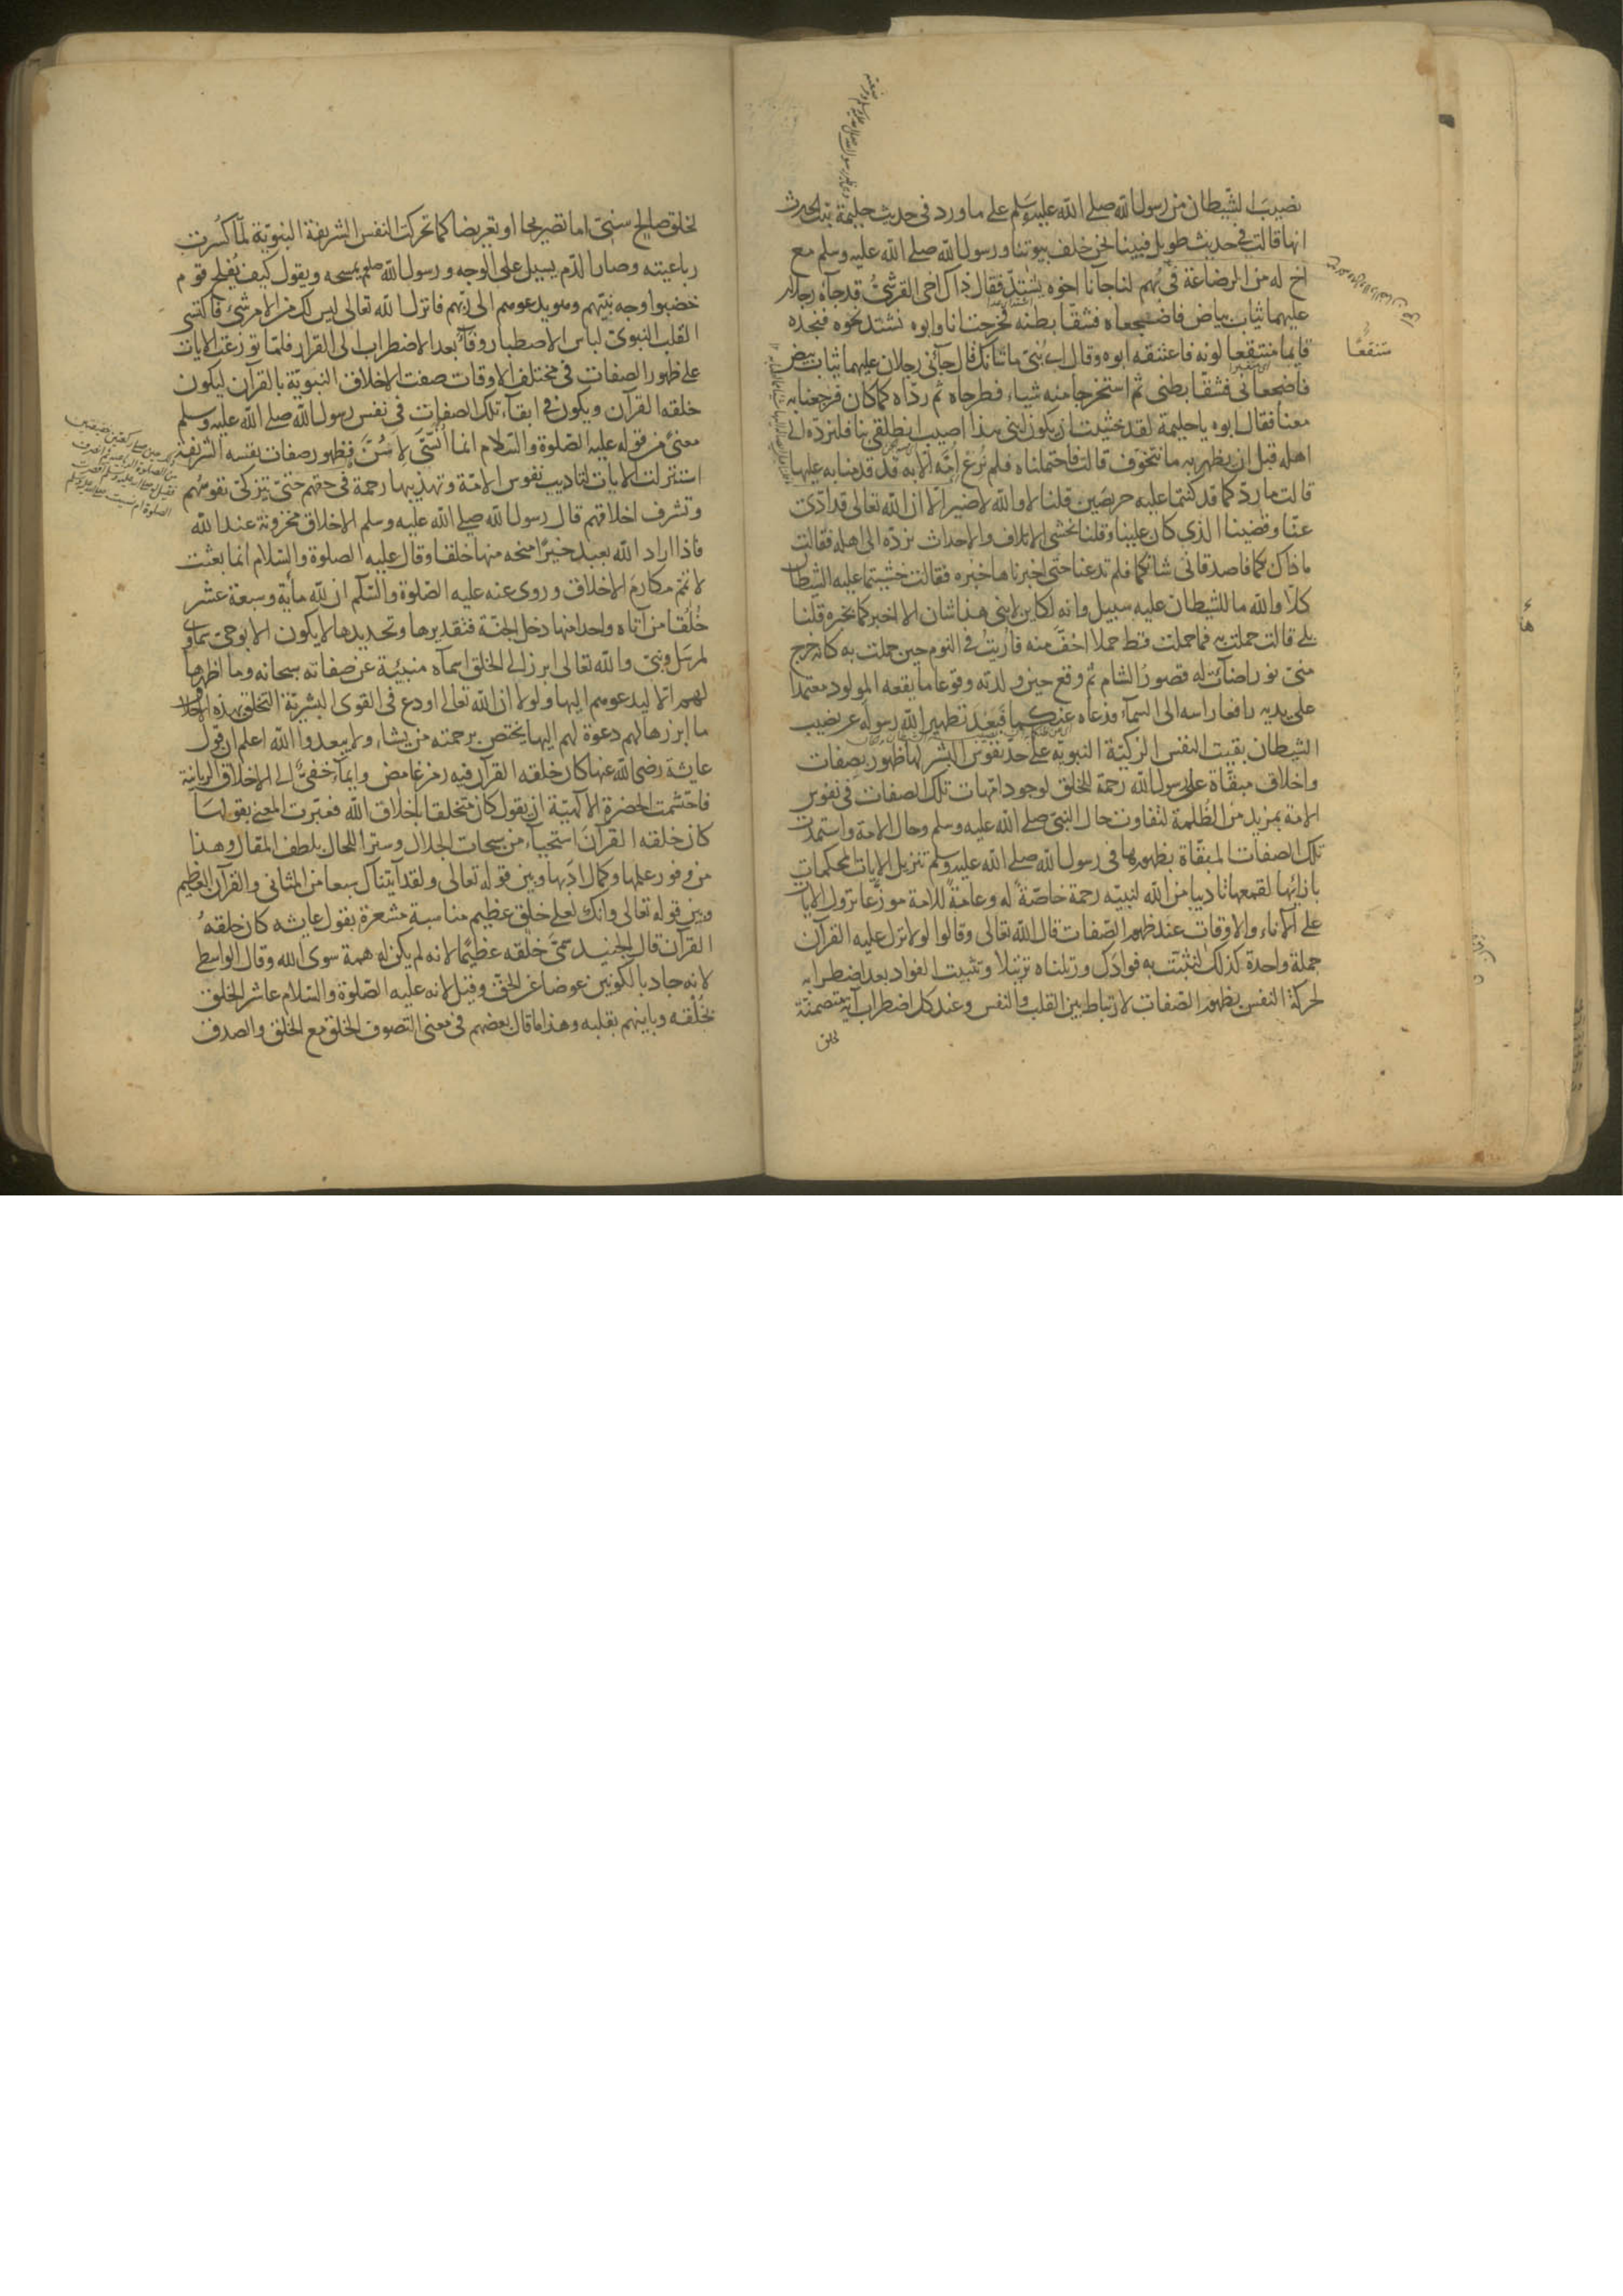 نصيب الشيطان من رسول الله صلى الله عليه وسلم على ما ورد في حديث حليمة بنت الحرث
انها قالت في حديث طويل فبينا نحن خلف بيوتنا ورسول الله صلى الله عليه وسلم مع
اخ له من الرضاعة في بهم لنا جآنا اخوه يشتد فقال ذاك اخى القرشى قد جآه رجلان
عليهما ثياب بياض فاضجعاه فشقا بطنه فخرجت انا وابوه نشتد نحوه فنجده
قايما منتقعا لونه فاعتنقه ابوه وقال اى بنى ما شانك قال جآئنى رجلان عليهما ثياب بيض
فاضجعانى فشقا بطنى ثم استخرجا منه شياء فطرحاه ثم ردّاه كما كان فرجعنا به
معنا فقال ابوه يا حليمة لقد خشيت ان يكون ابنى هذا اصيب انطلقى بنا فلنردّه الى
اهله قبل ان يظهر به ما نتخوف قالت فاحتملناه فلم ترع امّه الا به قد قدمنا به عليها
قالت ما ردّ كما قد كنتما عليه حريصين قلنا لا والله لا ضير الا ان الله تعالى قد ادّى
عنا وقضينا الذي كان علينا وقلنا نخشى الاتلاف والاحداث نردّه الى اهله فقالت
ما ذاك بكما فاصدقانى شانكما فلم تدعنا حتى اخبرناها خبره فقالت خشيتما عليه الشيطان
كلّا والله ما للشيطان عليه سبيل وانه لكاين لابنى هذا شان الا اخبركما بخبره قلنا
بلى قالت حملت به فما حملت قط حملا اخفّ منه فاريت في النوم حين حملت به كانه خرج
منى نور اضآت له قصور الشام ثم وقع حين ولدته وقوعا ما يقعه المولود معتمدا
على يديه رافعا راسه الى السمآء فدعاه عنكما فبعد تطهير الله رسوله عن نصيب
الشيطان بقيت النفس الزكيّة النبويّة على حد نفوس البشر لها ظهور بصفات
واخلاق مبقّاة على رسول الله رحمة للخلق لوجود امّهات تلك الصفات في نفوس
الامة بمزيد من الظلمة لتفاوت حال النبى صلى الله عليه وسلم وحال الامة واستمدت
تلك الصفات المبقّاة بظهورها في رسول الله صلى الله عليه وسلم تنزيل الايات المحكمات
بازائها لقمعها تاديبا من الله لنبيّه رحمة خاصّة له وعامة للامة موزعا نزول الايات
على الآناء والاوقات عند ظهور الصّفات قال الله تعالى وقالوا لولا نزل عليه القرآن
جملة واحدة كذلك لنثبت به فوادك ورتلناه ترتيلا وتثبيت الفواد بعد اضطرابه
لحركة النفس بظهور الصّفات لارتباط بين القلب والنفس وعند كل اضطراب آية متضمنة
لخلق
متنقعًا
لخلق صالح سنىّ اما تصريحا او تعريضا كما تحركت النفس الشريفة النبويّة لمّا كسرت
رباعيته وصار الدّم يسيل على الوجه ورسول الله صلعم يمسحه ويقول كيف يفلح قوم
خضبوا وجه نبيّهم وهو يدعوهم الى ربّهم فانزل الله تعالى ليس لك من الامر شئ فاكتسى
القلب النبوىّ لباس الاصطبار وفآء بعد الاضطراب الى القرار فلمّا توزعت الايات
على ظهور الصفات في مختلف الاوقات صفت الاخلاق النبويّة بالقرآن ليكون
خلقه القرآن ويكون في ابقآء تلك الصفات في نفس رسول الله صلى الله عليه وسلم
معنى من قوله عليه الصّلوة والسّلام انما أُنَسَّى لِاَسُنَّ فظهور صفات نفسه الشريفة
استنزلت الايات لتاديب نفوس الامّة وتهذيبها رحمة في حقهم حتى تتزكى نفوسهم
وتشرف اخلاقهم قال رسول الله صلى الله عليه وسلم الاخلاق مخزونة عند الله
فاذا اراد الله بعبد خيرًا منحه منها خلقا وقال عليه الصلوة والسّلام انما بعثت
لاتمّم مكارم الاخلاق وروى عنه عليه الصّلوة والسّلم ان لله مأية وسبعة عشر
خُلُقا من آتاه واحدا منها دخل الجنّة فتقديرها وتحديدها لا يكون الا بوحى سماوى
لمرسل ونبىّ والله تعالى ابرز الى الخلق اسمآه منبئة عن صفاته سبحانه وما اظهرها
لهم الّا ليدعوهم اليها ولولا ان الله تعالى اودع في القوى البشريّة التخلق بهذه الاخلاق
ما ابرزها لهم دعوة لهم اليها يختص برحمته من يشاء ولا يبعد والله اعلم ان قول
عايشة رضى الله عنها كان خلقه القرآن فيه رمز غامض وايمآء خفىّ الى الاخلاق الربانية
فاحتشمت الحضرة الالهيّة ان يقول كان متخلقا باخلاق الله فعبّرت المعنى بقولها
كان خلقه القرآن استحيآء من سبحات الجلال وسترا للحال بلطف المقال وهذا
من وفور علمها وكمال ادبها وبين قوله تعالى ولقد آتيناك سبعا من المثانى والقرآن العظيم
وبين قوله تعالى وانك لعلى خلق عظيم مناسبة مشعرة بقول عايشه كان خلقهُ
القرآن قال الجنيد سمّى خلقه عظيمًا لانه لم يكن له همة سوى الله وقال الواسطى
لانه جاد بالكونين عوضا عن الحق وقيل لانه عليه الصّلوة والسّلام عاشر الخلق
بخُلُقه وباينهم بقلبه وهذا ما قال بعضهم في معنى التصوف الخلق مع الخلق والصدق